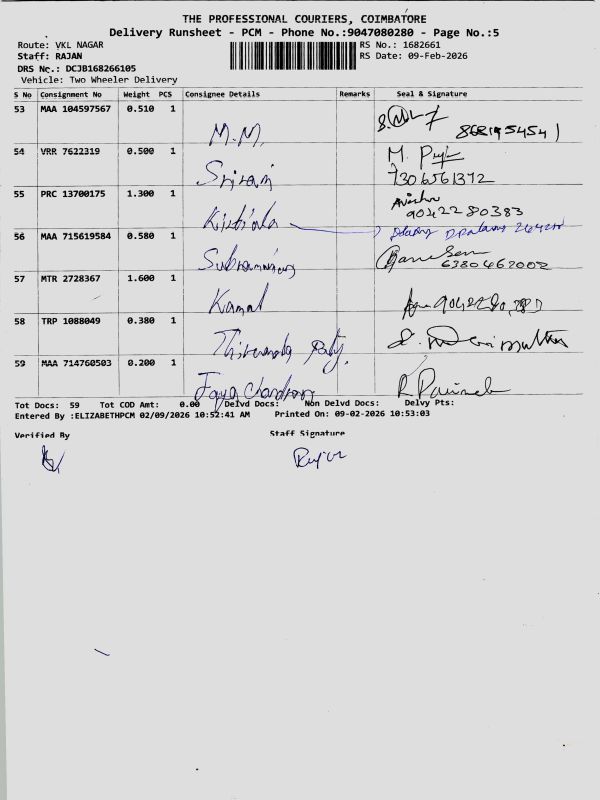 THE PROFESSIONAL COURIERS, COIMBATORE
Delivery Runsheet - PCM - Phone No.:9047080280 - Page No.:5
Route: VKL NAGAR
RS No.: 1682661
Staff: RAJAN
RS Date: 09-Feb-2026
DRS No.: DCJB168266105
Vehicle: Two Wheeler Delivery
S No Consignment No Weight PCS Consignee Details Remarks Seal & Signature
53 MAA 104597567 0.510 1
M.M.
54 VRR 7622319 0.500 1
Sriram
7306561372
55 PRC 13700175 1.300 1
9042280383
56 MAA 715619584 0.580 1
6380462002
57 MTR 2728367 1.600 1
Kamal
58 TRP 1088049 0.380 1
59 MAA 714760503 0.200 1
Jaya Chandran
Tot Docs: 59 Tot COD Amt: 0.00 Delvd Docs: Non Delvd Docs: Delvy Pts:
Entered By :ELIZABETHPCM 02/09/2026 10:52:41 AM Printed On: 09-02-2026 10:53:03
Verified By Staff Signature